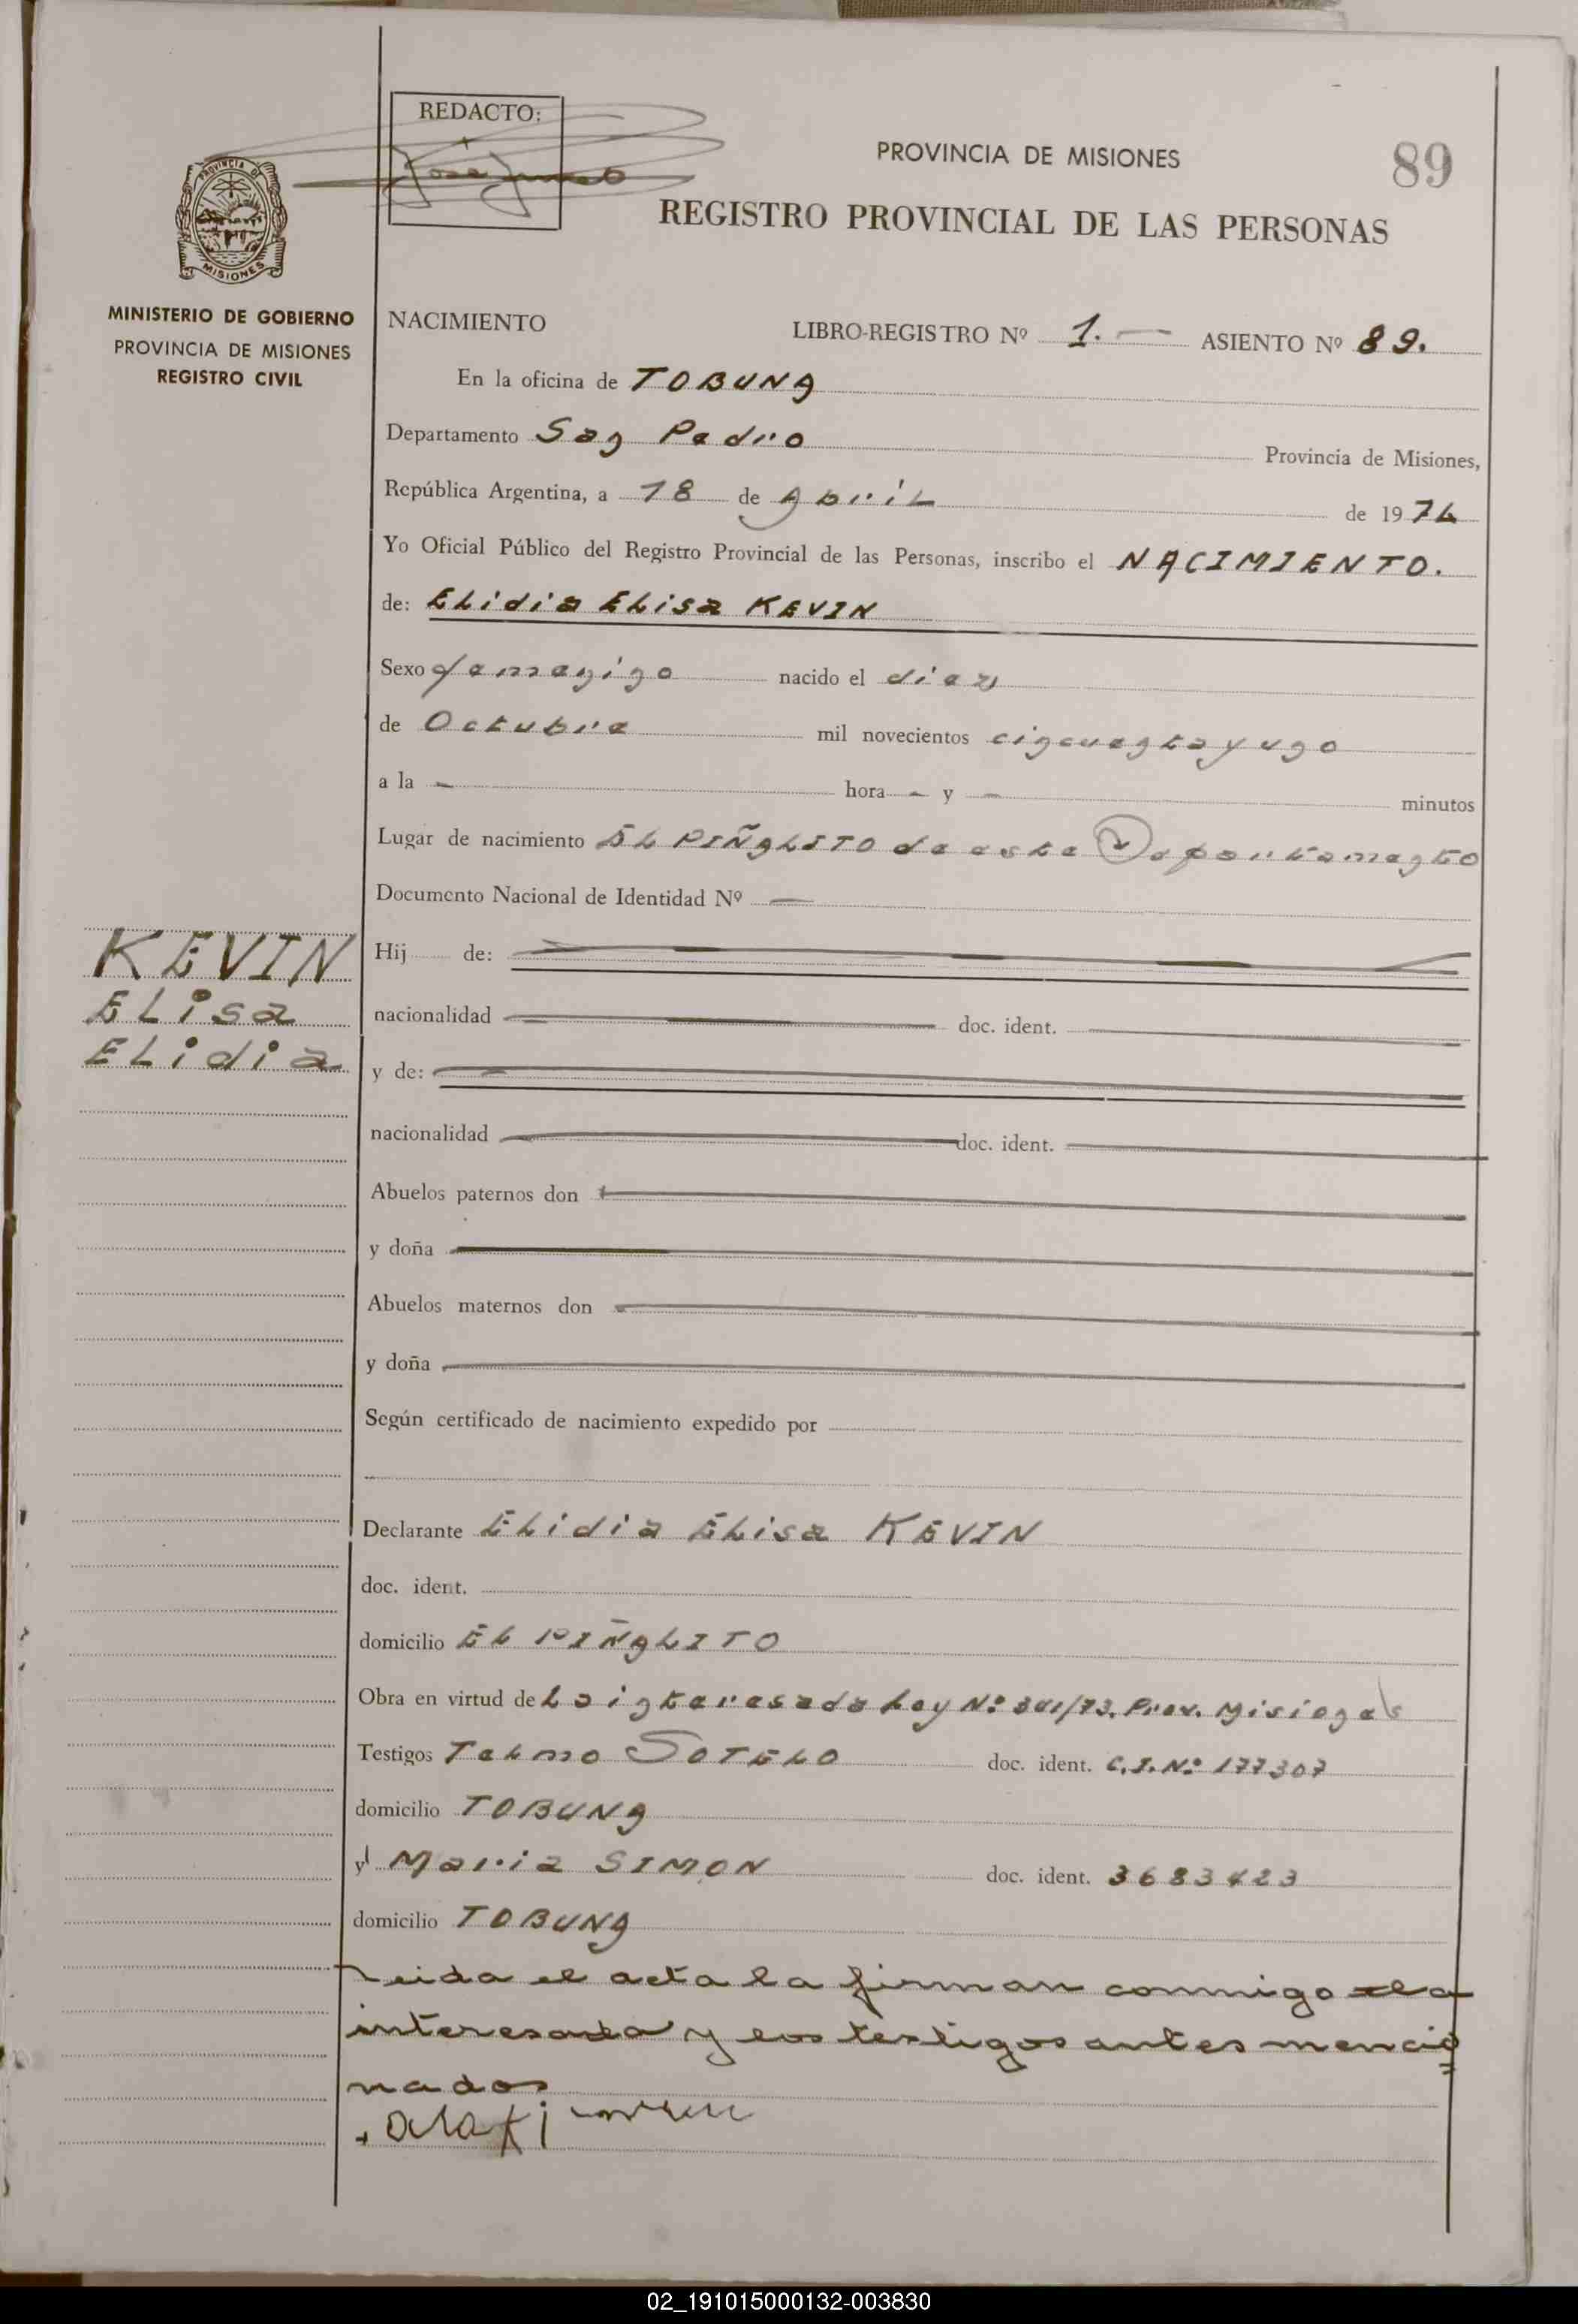 REDACTO:
PROVINCIA DE MISIONES
89
REGISTRO PROVINCIAL DE LAS PERSONAS
PROVINCIA DE
MISIONES
MINISTERIO DE GOBIERNO
PROVINCIA DE MISIONES
REGISTRO CIVIL
NACIMIENTO LIBRO-REGISTRO Nº 1.— ASIENTO Nº 89.
En la oficina de TOBUNA
Departamento San Pedro Provincia de Misiones,
República Argentina, a 18 de Abril de 1974
Yo Oficial Público del Registro Provincial de las Personas, inscribo el NACIMIENTO.
de: ELidia ELisa KEVIN
Sexo femenino nacido el diez
de Octubre mil novecientos cincuenta y uno
a la — hora — y — minutos
Lugar de nacimiento EL PIÑALITO de este Departamento
Documento Nacional de Identidad Nº —
KEVIN
ELisa
ELidia
Hij de:
nacionalidad doc. ident.
y de:
nacionalidad doc. ident.
Abuelos paternos don
y doña
Abuelos maternos don
y doña
Según certificado de nacimiento expedido por
Declarante ELidia ELisa KEVIN
doc. ident.
domicilio EL PIÑALITO
Obra en virtud de La interesada Ley Nº 341/73. Prov. Misiones
Testigos Telmo SOTELO doc. ident. C.I.Nº 177307
domicilio TOBUNA
y Maria SIMON doc. ident. 3683423
domicilio TOBUNA
Leida el acta la firman conmigo la
interesada y los testigos antes mencio
nados
02_191015000132-003830